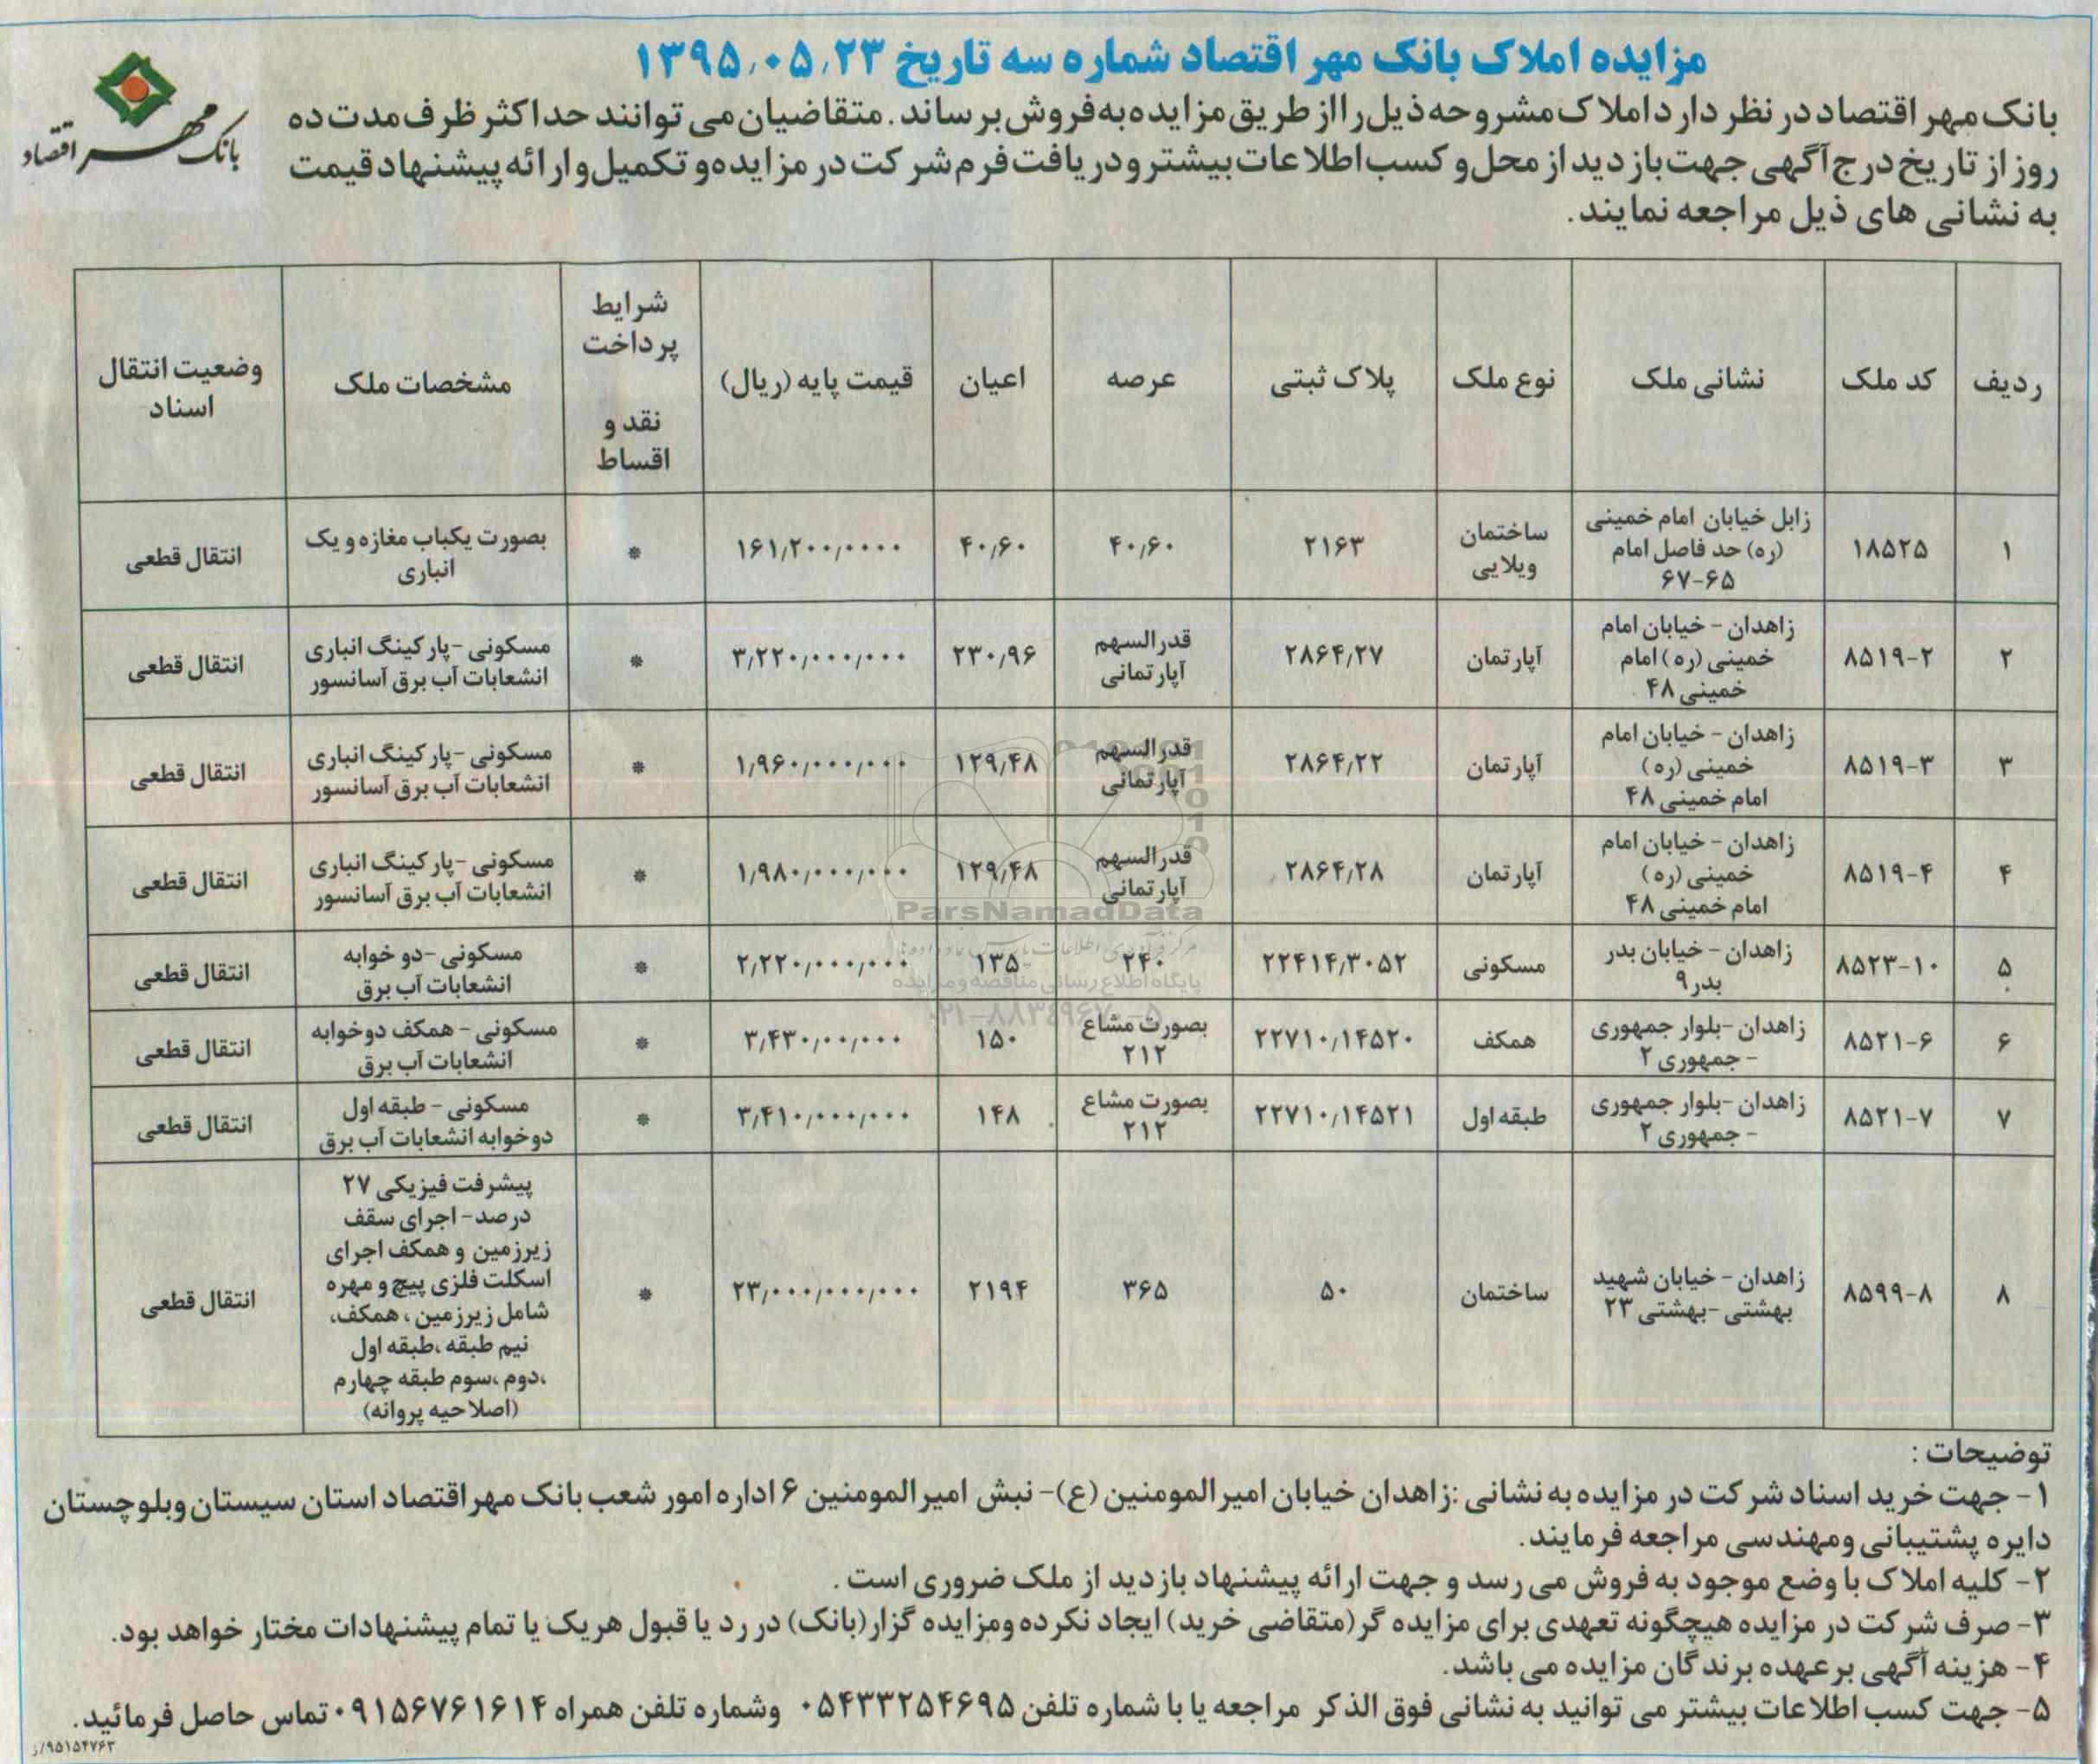 مزایده املاک بانک مهر اقتصاد شماره سه تاریخ ۱۳۹۵،۰۵،۲۳
بانک مهر اقتصاد
بانک مهر اقتصاد در نظر دارد املاک مشروحه ذیل را از طریق مزایده به فروش برساند. متقاضیان می توانند حداکثر ظرف مدت ده
روز از تاریخ درج آگهی جهت بازدید از محل و کسب اطلاعات بیشتر و دریافت فرم شرکت در مزایده و تکمیل و ارائه پیشنهاد قیمت
به نشانی های ذیل مراجعه نمایند.
ردیف کد ملک نشانی ملک نوع ملک پلاک ثبتی عرصه اعیان قیمت پایه (ریال) شرایط پرداخت نقد و اقساط مشخصات ملک وضعیت انتقال اسناد
۱ ۱۸۵۲۵ زابل خیابان امام خمینی (ره) حد فاصل امام ۶۵-۶۷ ساختمان ویلایی ۲۱۶۳ ۴۰٫۶۰ ۴۰٫۶۰ ۱۶۱٫۲۰۰٫۰۰۰۰ * بصورت یکباب مغازه و یک انباری انتقال قطعی
۲ ۸۵۱۹-۲ زاهدان - خیابان امام خمینی (ره) امام خمینی ۴۸ آپارتمان ۲۸۶۴٫۲۷ قدرالسهم آپارتمانی ۲۳۰٫۹۶ ۳٫۲۲۰٫۰۰۰٫۰۰۰ * مسکونی -پارکینگ انباری انشعابات آب برق آسانسور انتقال قطعی
۳ ۸۵۱۹-۳ زاهدان - خیابان امام خمینی (ره) امام خمینی ۴۸ آپارتمان ۲۸۶۴٫۲۲ قدرالسهم آپارتمانی ۱۲۹٫۴۸ ۱٫۹۶۰٫۰۰۰٫۰۰۰ * مسکونی -پارکینگ انباری انشعابات آب برق آسانسور انتقال قطعی
۴ ۸۵۱۹-۴ زاهدان - خیابان امام خمینی (ره) امام خمینی ۴۸ آپارتمان ۲۸۶۴٫۲۸ قدرالسهم آپارتمانی ۱۲۹٫۴۸ ۱٫۹۸۰٫۰۰۰٫۰۰۰ * مسکونی -پارکینگ انباری انشعابات آب برق آسانسور انتقال قطعی
۵ ۸۵۲۳-۱۰ زاهدان - خیابان بدر بدر ۹ مسکونی ۲۲۴۱۴٫۳۰۵۲ ۲۴۰ ۱۳۵ ۲٫۲۲۰٫۰۰۰٫۰۰۰ * مسکونی -دو خوابه انشعابات آب برق انتقال قطعی
۶ ۸۵۲۱-۶ زاهدان -بلوار جمهوری - جمهوری ۲ همکف ۲۲۷۱۰٫۱۴۵۲۰ بصورت مشاع ۲۱۲ ۱۵۰ ۳٫۴۳۰٫۰۰٫۰۰۰ * مسکونی - همکف دوخوابه انشعابات آب برق انتقال قطعی
۷ ۸۵۲۱-۷ زاهدان -بلوار جمهوری - جمهوری ۲ طبقه اول ۲۲۷۱۰٫۱۴۵۲۱ بصورت مشاع ۲۱۲ ۱۴۸ ۳٫۴۱۰٫۰۰۰٫۰۰۰ * مسکونی - طبقه اول دوخوابه انشعابات آب برق انتقال قطعی
۸ ۸۵۹۹-۸ زاهدان - خیابان شهید بهشتی -بهشتی ۲۳ ساختمان ۵۰ ۳۶۵ ۲۱۹۴ ۲۳٫۰۰۰٫۰۰۰٫۰۰۰ * پیشرفت فیزیکی ۲۷ درصد- اجرای سقف زیرزمین و همکف اجرای اسکلت فلزی پیچ و مهره شامل زیرزمین، همکف، نیم طبقه ،طبقه اول ،دوم ،سوم طبقه چهارم (اصلاحیه پروانه) انتقال قطعی
ParsNamadData
پایگاه اطلاع رسانی مناقصه و مزایده
۰۲۱-۸۸۳۴۹۶۷۰-۵
توضیحات :
۱- جهت خرید اسناد شرکت در مزایده به نشانی :زاهدان خیابان امیرالمومنین (ع)- نبش امیرالمومنین ۶ اداره امور شعب بانک مهر اقتصاد استان سیستان وبلوچستان
دایره پشتیبانی ومهندسی مراجعه فرمایند.
۲- کلیه املاک با وضع موجود به فروش می رسد و جهت ارائه پیشنهاد بازدید از ملک ضروری است .
۳- صرف شرکت در مزایده هیچگونه تعهدی برای مزایده گر (متقاضی خرید) ایجاد نکرده ومزایده گزار(بانک) در رد یا قبول هریک یا تمام پیشنهادات مختار خواهد بود.
۴- هزینه آگهی بر عهده برندگان مزایده می باشد.
۵- جهت کسب اطلاعات بیشتر می توانید به نشانی فوق الذکر مراجعه یا با شماره تلفن ۰۵۴۳۳۲۵۴۶۹۵ وشماره تلفن همراه ۰۹۱۵۶۷۶۱۶۱۴ تماس حاصل فرمائید.
۹۵۱۵۴۷۶۳/ز